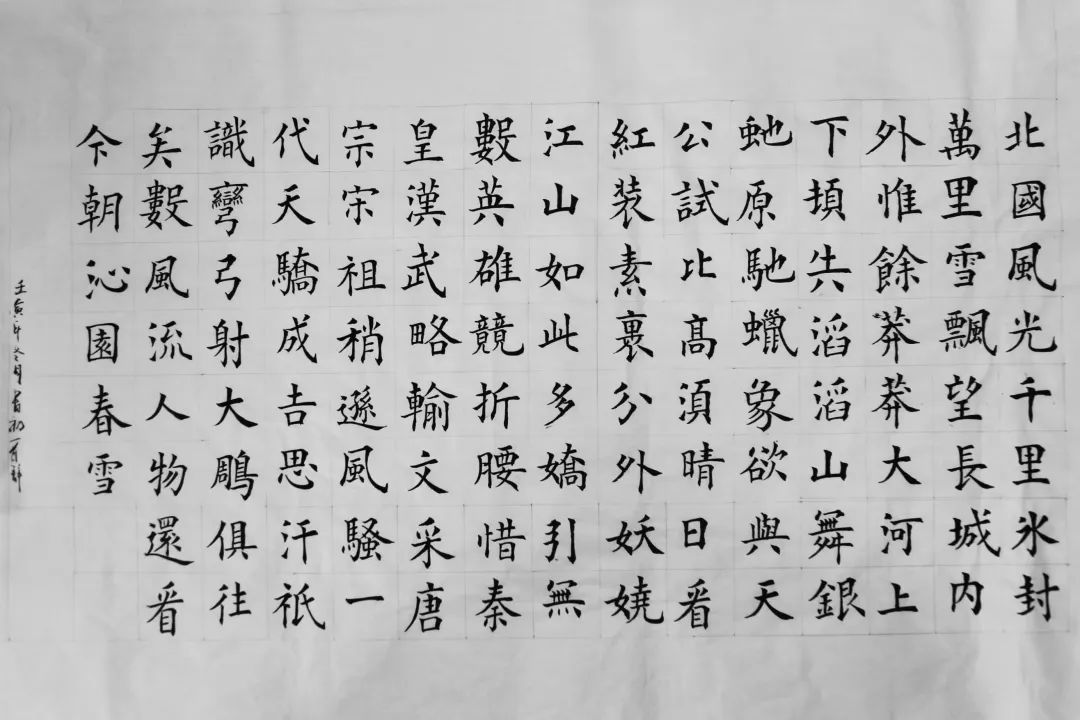 北國風光千里氷封
萬里雪飄望長城内
外惟餘莽莽大河上
下頓失滔滔山舞銀
虵原馳蠟象欲與天
公試比高須晴日看
紅装素裹分外妖嬈
江山如此多嬌引無
數英雄競折腰惜秦
皇漢武略輸文采唐
宗宋祖稍遜風騷一
代天驕成吉思汗祇
識彎弓射大鵰俱往
矣數風流人物還看
今朝沁園春雪
壬寅年冬月